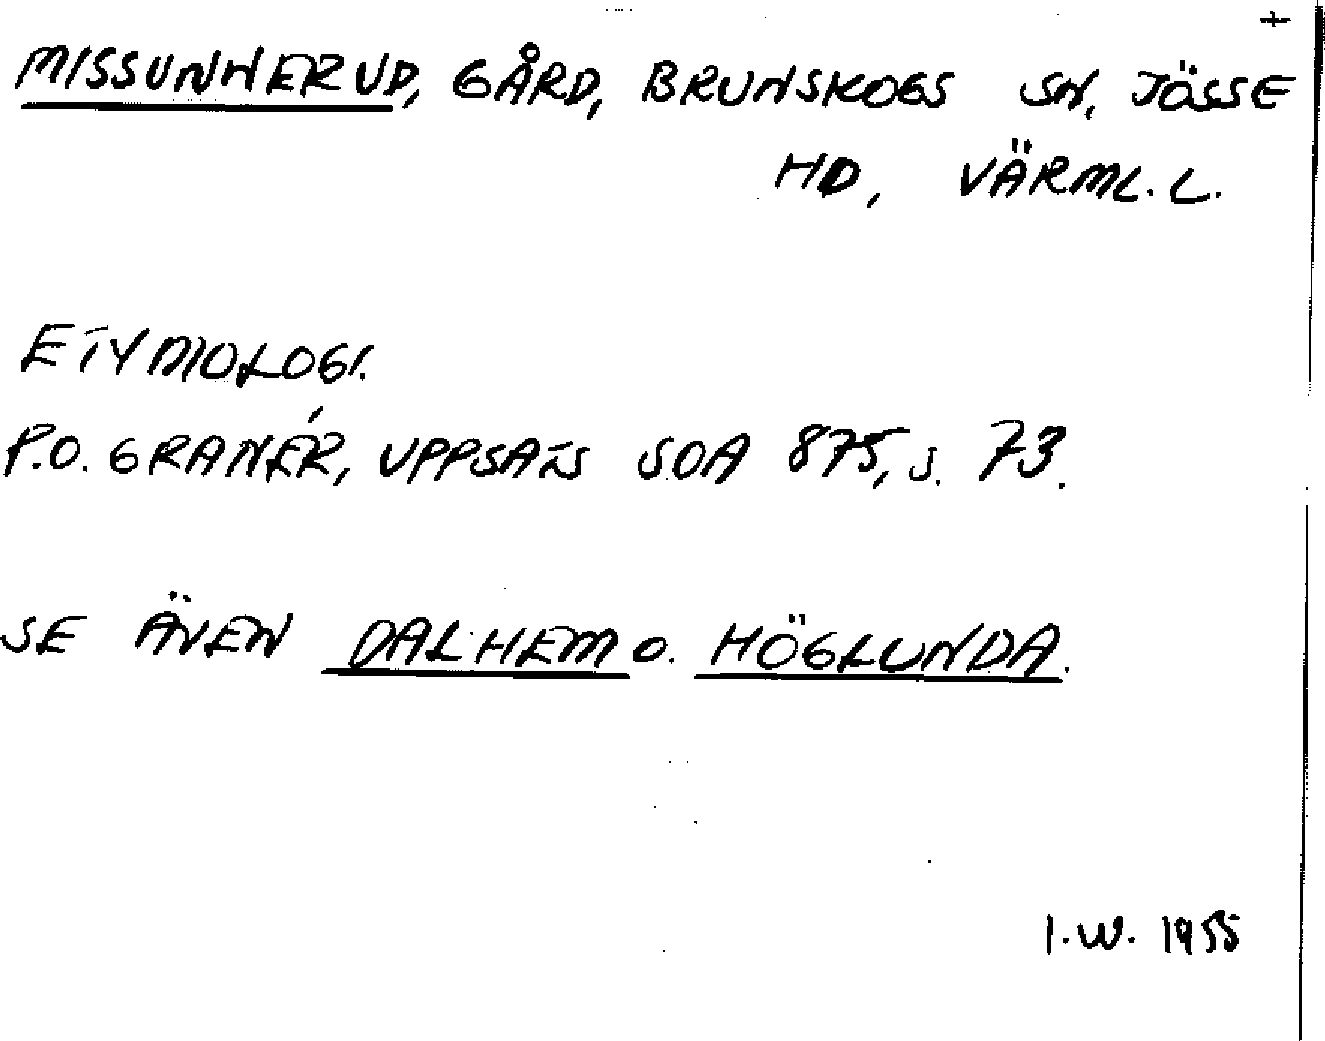 +
MISSUNNERUD, GÅRD, BRUNSKOGS SN, JÖSSE
HD, VÄRML. L.
ETYMOLOGI.
P.O. GRANÉR, UPPSATS SOA 875, S. 73.
SE ÄVEN DALHEM O. HÖGLUNDA.
I.W. 1955